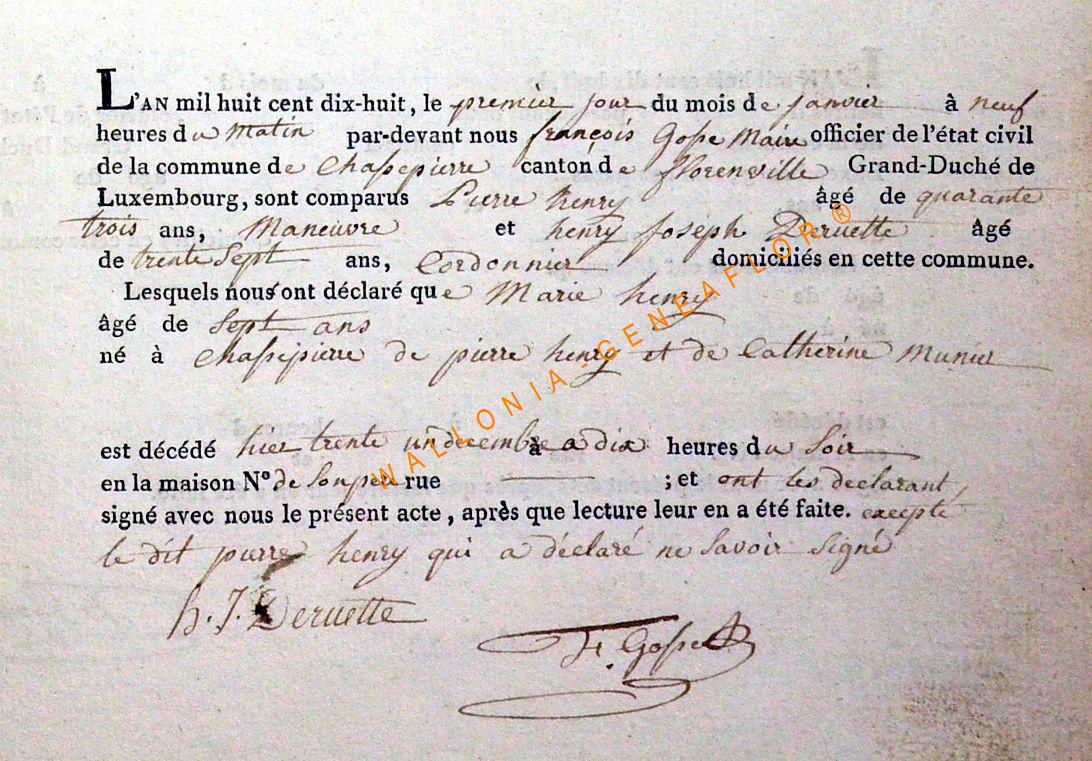 L'AN mil huit cent dix-huit, le premier jour du mois de janvier à neuf
heures du matin par-devant nous françois Gosse Maire officier de l'état civil
de la commune de Chassepierre canton de florenville Grand-Duché de
Luxembourg, sont comparus Pierre henry âgé de quarante
trois ans, Maneuvre et henry joseph Deruette âgé
de trente Sept ans, Cordonnier domiciliés en cette commune.
Lesquels nous ont déclaré que Marie henry
âgé de Sept ans
né à Chassepierre de pierre henry et de Catherine Munier
est décédé hier trente un decembre à a dix heures du Soir
en la maison N° de Son pere rue ; et ont les declarant
signé avec nous le présent acte, après que lecture leur en a été faite. excepté
le dit pierre henry qui a déclaré ne Savoir Signé
h. J. Deruette
F. Gosse
WALLONIA-GENEAFLOR®